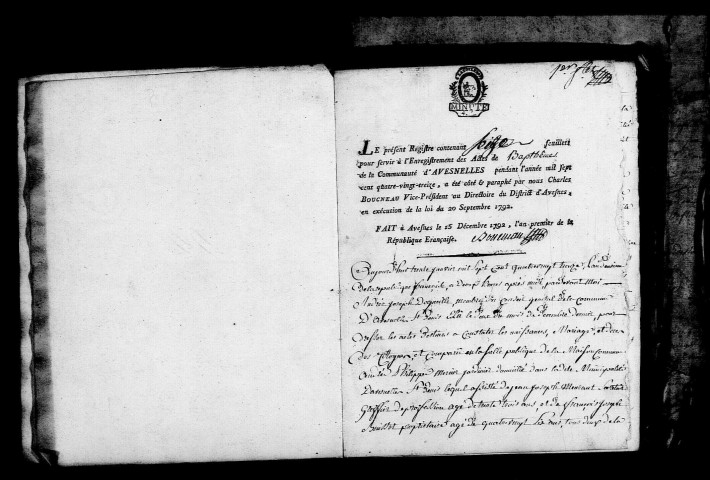 1er f.let
MINUTE
LE présent Registre contenant seize feuillets
pour servir à l'Enregistrement des Actes de Baptême
de la Communauté d'AVESNELLES pendant l'année mil sept
cent quatre-vingt-treize, a été côté & paraphé par nous Charles
BOUCNEAU Vice-Président au Directoire du District d'Avesnes,
en exécution de la loi du 20 Septembre 1792.
FAIT à Avesnes le 15 Décembre 1792, l'an premier de la
République Française. Boucneau
Aujourd'hui trente janvier mil sept cent quatre vingt treize, l'an deuxieme
de la republique française, à deux heures après midi, pardevant moi
André Joseph membre du conseil general de la commune
D'Avesnelles élu le du mois de Decembre dernier, pour
dresser les actes destinés a constater les naissances, Mariages, et deces
des Citoyens, est comparu en la salle publique de la Maison Commune
Philippe jardinier domicilié dans la dite Municipalité
D'avesnelles lequel assisté de jean Joseph
Greffier de profession agé de trente trois ans, et de françois joseph
proprietaire agé de quatre vingt ans, tous deux de la